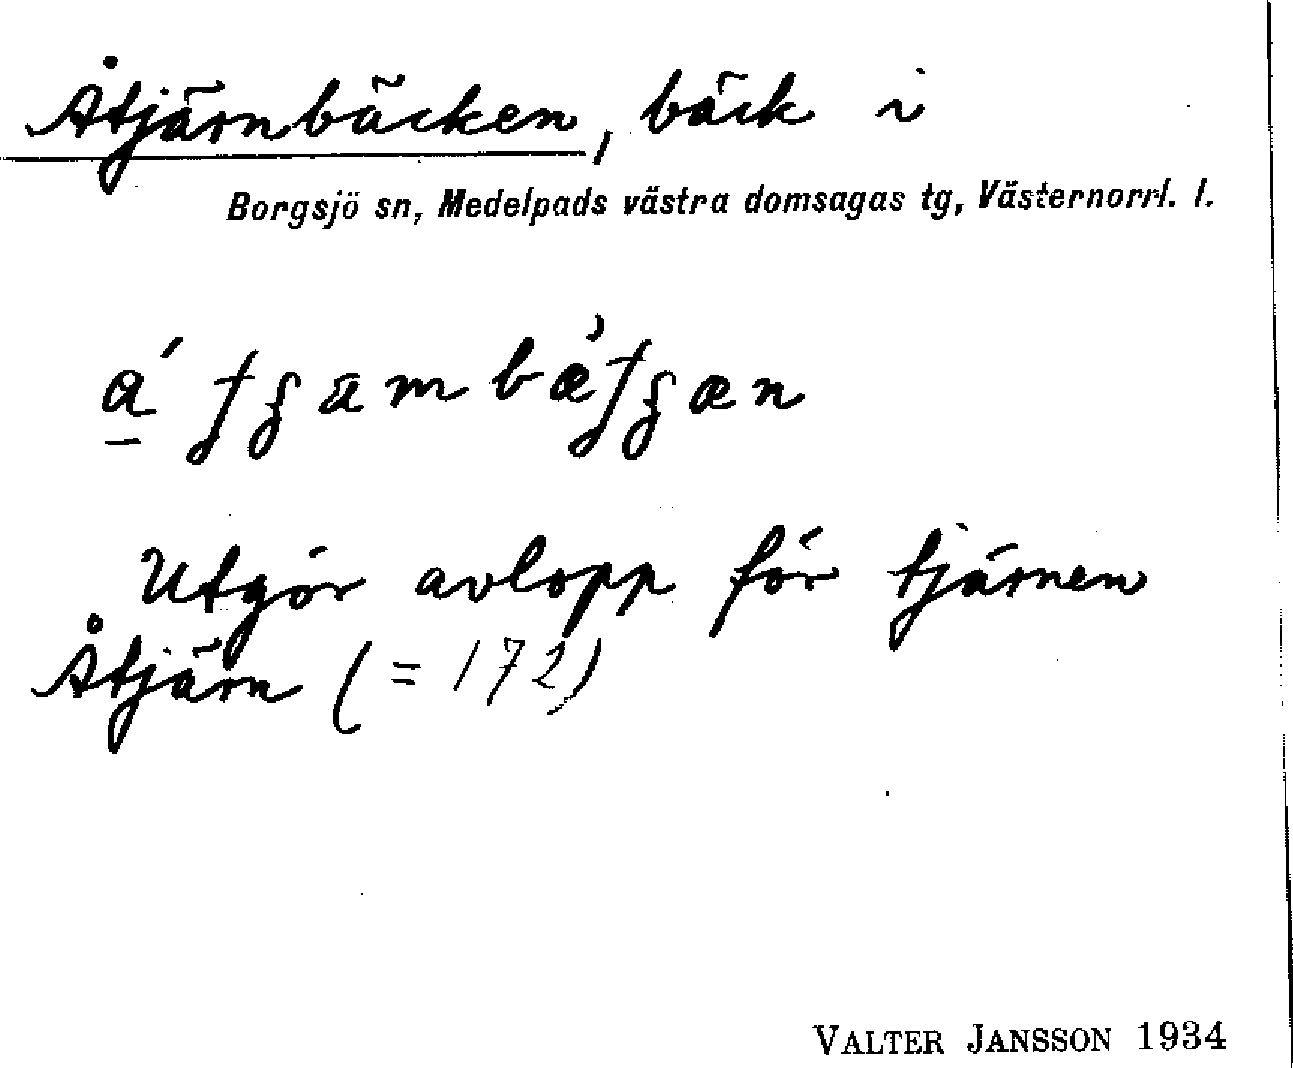 Åtjärnbäcken, bäck i
Borgsjö sn, Medelpads västra domsagas tg, Västernorrl. l.
Utgör avlopp för tjärnen
Åtjärn (= 172)
VALTER JANSSON 1934